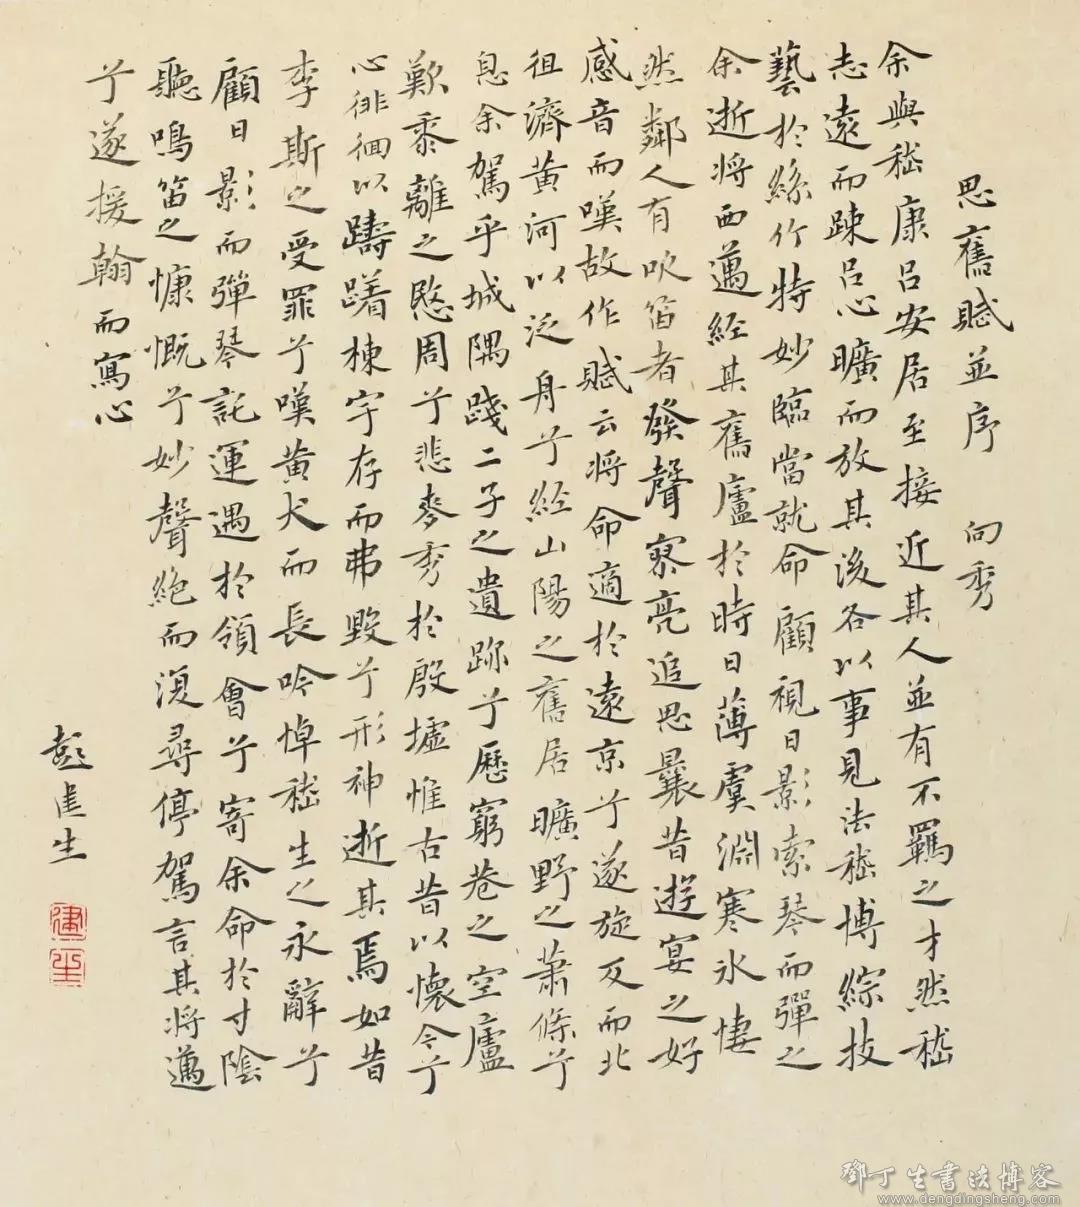 思舊賦並序 向秀
余與嵇康呂安居至接近其人並有不羈之才然嵇
志遠而踈呂心曠而放其後各以事見法嵇博綜技
藝於絲竹特妙臨當就命顧視日影索琴而彈之
余逝将西邁經其舊廬於時日薄虞淵寒冰悽
然鄰人有吹笛者發聲寥亮追思曩昔遊宴之好
感音而嘆故作賦云将命適於遠京兮遂旋反而北
徂濟黄河以泛舟兮經山陽之舊居曠野之蕭條兮
息余駕乎城隅踐二子之遺跡兮歷窮巷之空廬
歎黍離之愍周兮悲麥秀於殷墟惟古昔以懷今兮
心徘徊以躊躇棟宇存而弗毀兮形神逝其焉如昔
李斯之受罪兮嘆黄犬而長吟悼嵇生之永辭兮
顧日影而彈琴託運遇於領會兮寄余命於寸陰
聽鳴笛之慷慨兮妙聲絶而復尋停駕言其将邁
兮遂援翰而寫心
彭生
鄧丁生書法博客
www.dengdingsheng.com